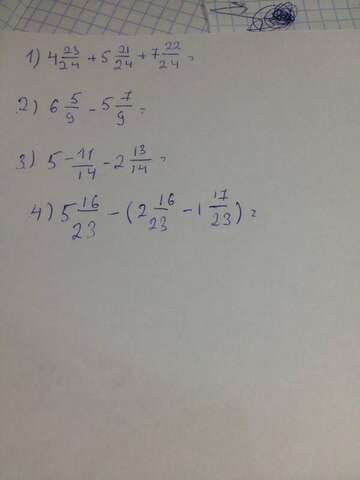 1) 4 23/24 + 5 21/24 + 7 22/24 =
2) 6 5/9 - 5 7/9 =
3) 5 - 11/14 - 2 13/14 =
4) 5 16/23 - (2 16/23 - 1 17/23) =